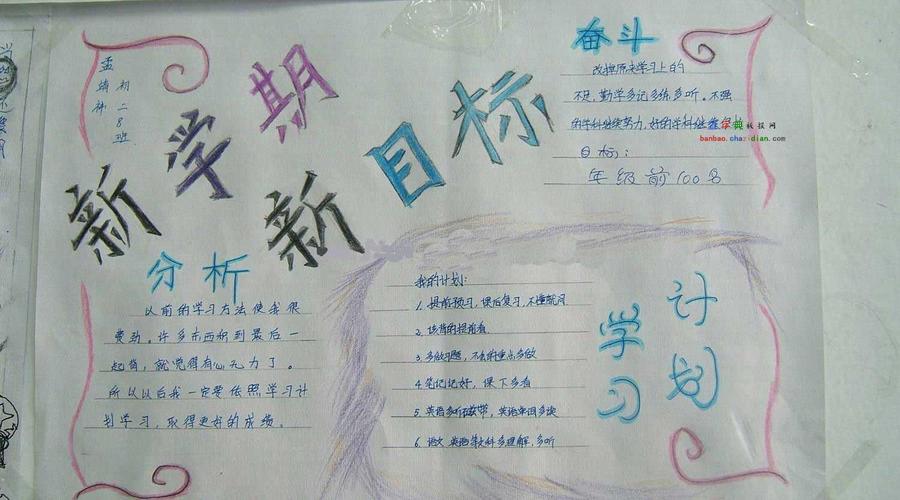 新学期
新目标
孟
婧
初二8班
分析
以前的学习方法使我很
费劲。许多东西积到最后一
起背,就觉得有心无力了。
所以以后我一定要依照学习计
划学习,取得更好的成绩。
奋斗
改掉原来学习上的
不足,勤学多记多练多听,不强
的学科继续努力,好的学科继续
目标:
年级前100名
查字典板报网
banbao.chazidian.com
学习
计划
我的计划:
1. 提前预习,课后复习,不懂就问
2. 该背的提前背
3. 多做习题,不会的重点多做
4. 笔记记好,课下多看
5. 英语多听磁带,英语单词多读
6. 语文 英语等文科多理解,多听